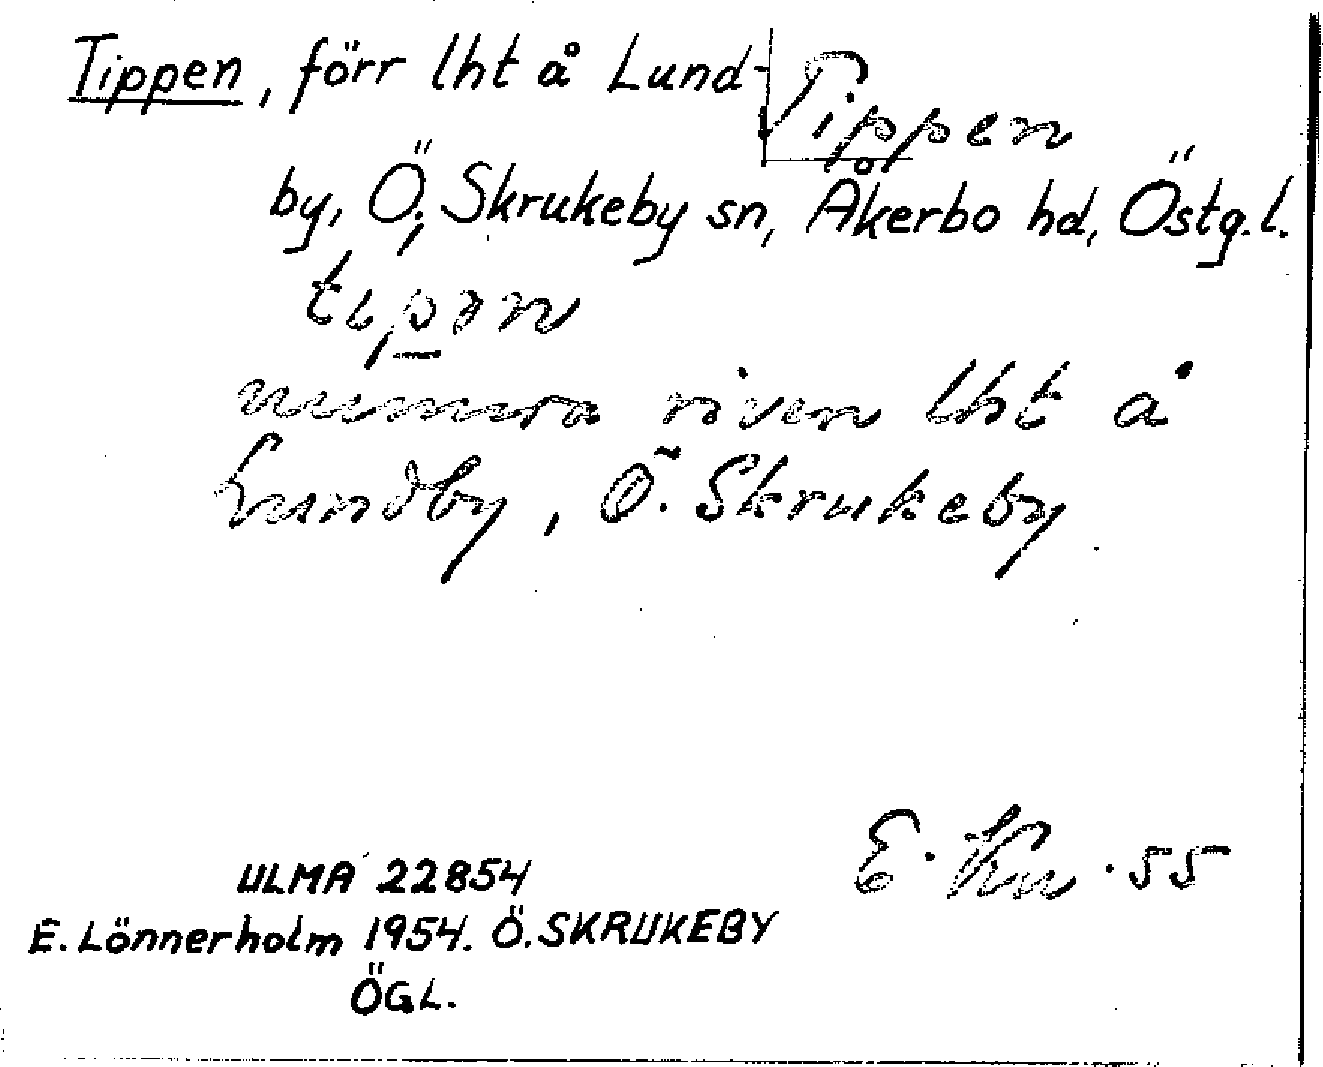 Tippen, förr lht å Lund-
Tippen
by, Ö. Skrukeby sn, Åkerbo hd, Östg.l.
tıpən
numera riven lht å
Lundby, Ö. Skrukeby
E. Kn. 55
ULMA 22854
E. Lönnerholm 1954. Ö. SKRUKEBY
ÖGL.